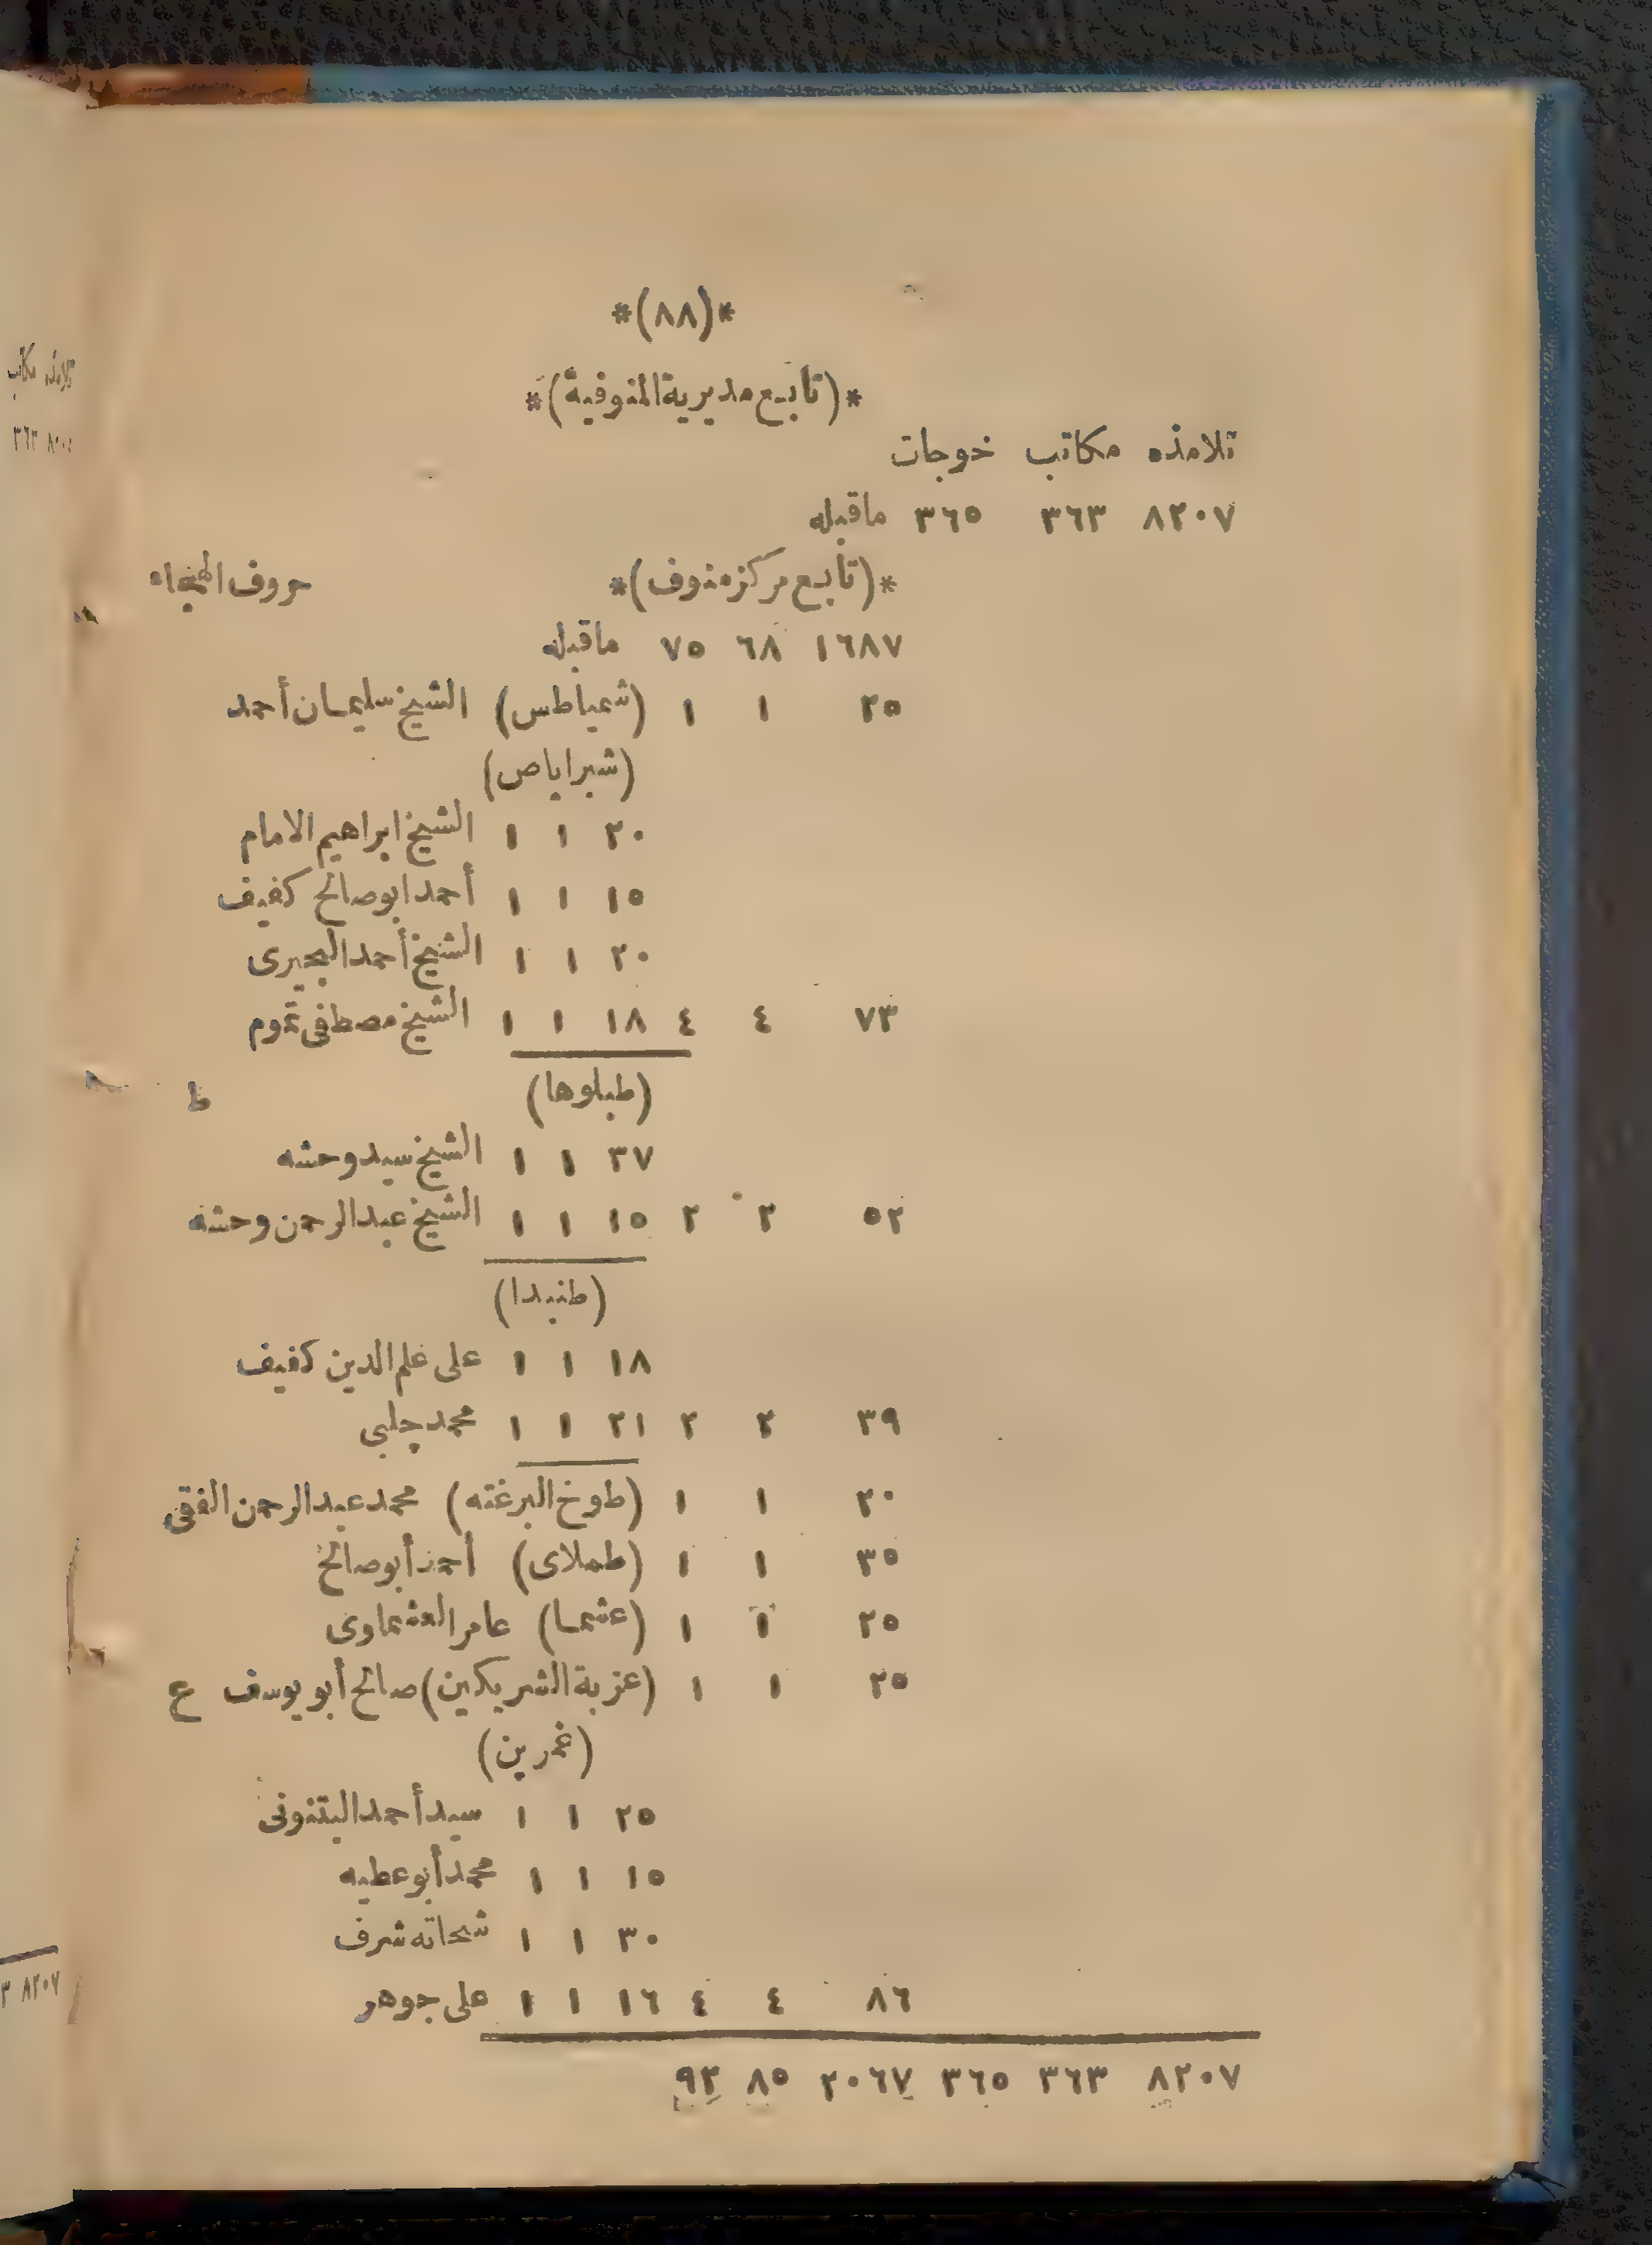 *(٨٨)*
*(تابع مديرية المنوفية)*
تلامذه مكاتب خوجات
٨٢٠٧ ٣٦٣ ٣٦٥ ماقبله
*(تابع مركز منوف)* حروف الهجاء
١٦٨٧ ٦٨ ٧٥ ماقبله
٢٥ ١ ١ (شمياطس) الشيخ سليمان أحمد
(شبراباص)
٢٠ ١ ١ الشيخ ابراهيم الامام
١٥ ١ ١ أحمد ابوصالح كفيف
٢٠ ١ ١ الشيخ أحمد البحيرى
٧٣ ٤ ٤ ١٨ ١ ١ الشيخ مصطفى
(طبلوها) ط
٣٧ ١ ١ الشيخ سيد وحشه
٥٢ ٢ ٢ ١٥ ١ ١ الشيخ عبد الرحمن وحشه
(طنبدا)
١٨ ١ ١ على علم الدين كفيف
٣٩ ٢ ٢ ٢١ ١ ١ محمد چلبى
٢٠ ١ ١ (طوخ البرغته) محمد عبد الرحمن الفقى
٣٥ ١ ١ (طملاى) أحمد أبوصالح
٢٥ ١ ١ (عشما) عامر العشماوى
٢٥ ١ ١ (عزبة الشريكين) صالح أبو يوسف ع
(غمرين)
٢٥ ١ ١ سيد أحمد البتنونى
١٥ ١ ١ محمد أبوعطيه
٣٠ ١ ١ شحاته شرف
٨٦ ٤ ٤ ١٦ ١ ١ على جوهر
٨٢٠٧ ٣٦٣ ٣٦٥ ٢٠٦٧ ٨٥ ٩٢
تلامذه مكاتب
٣٦٣
٨٢٠٧ ٣